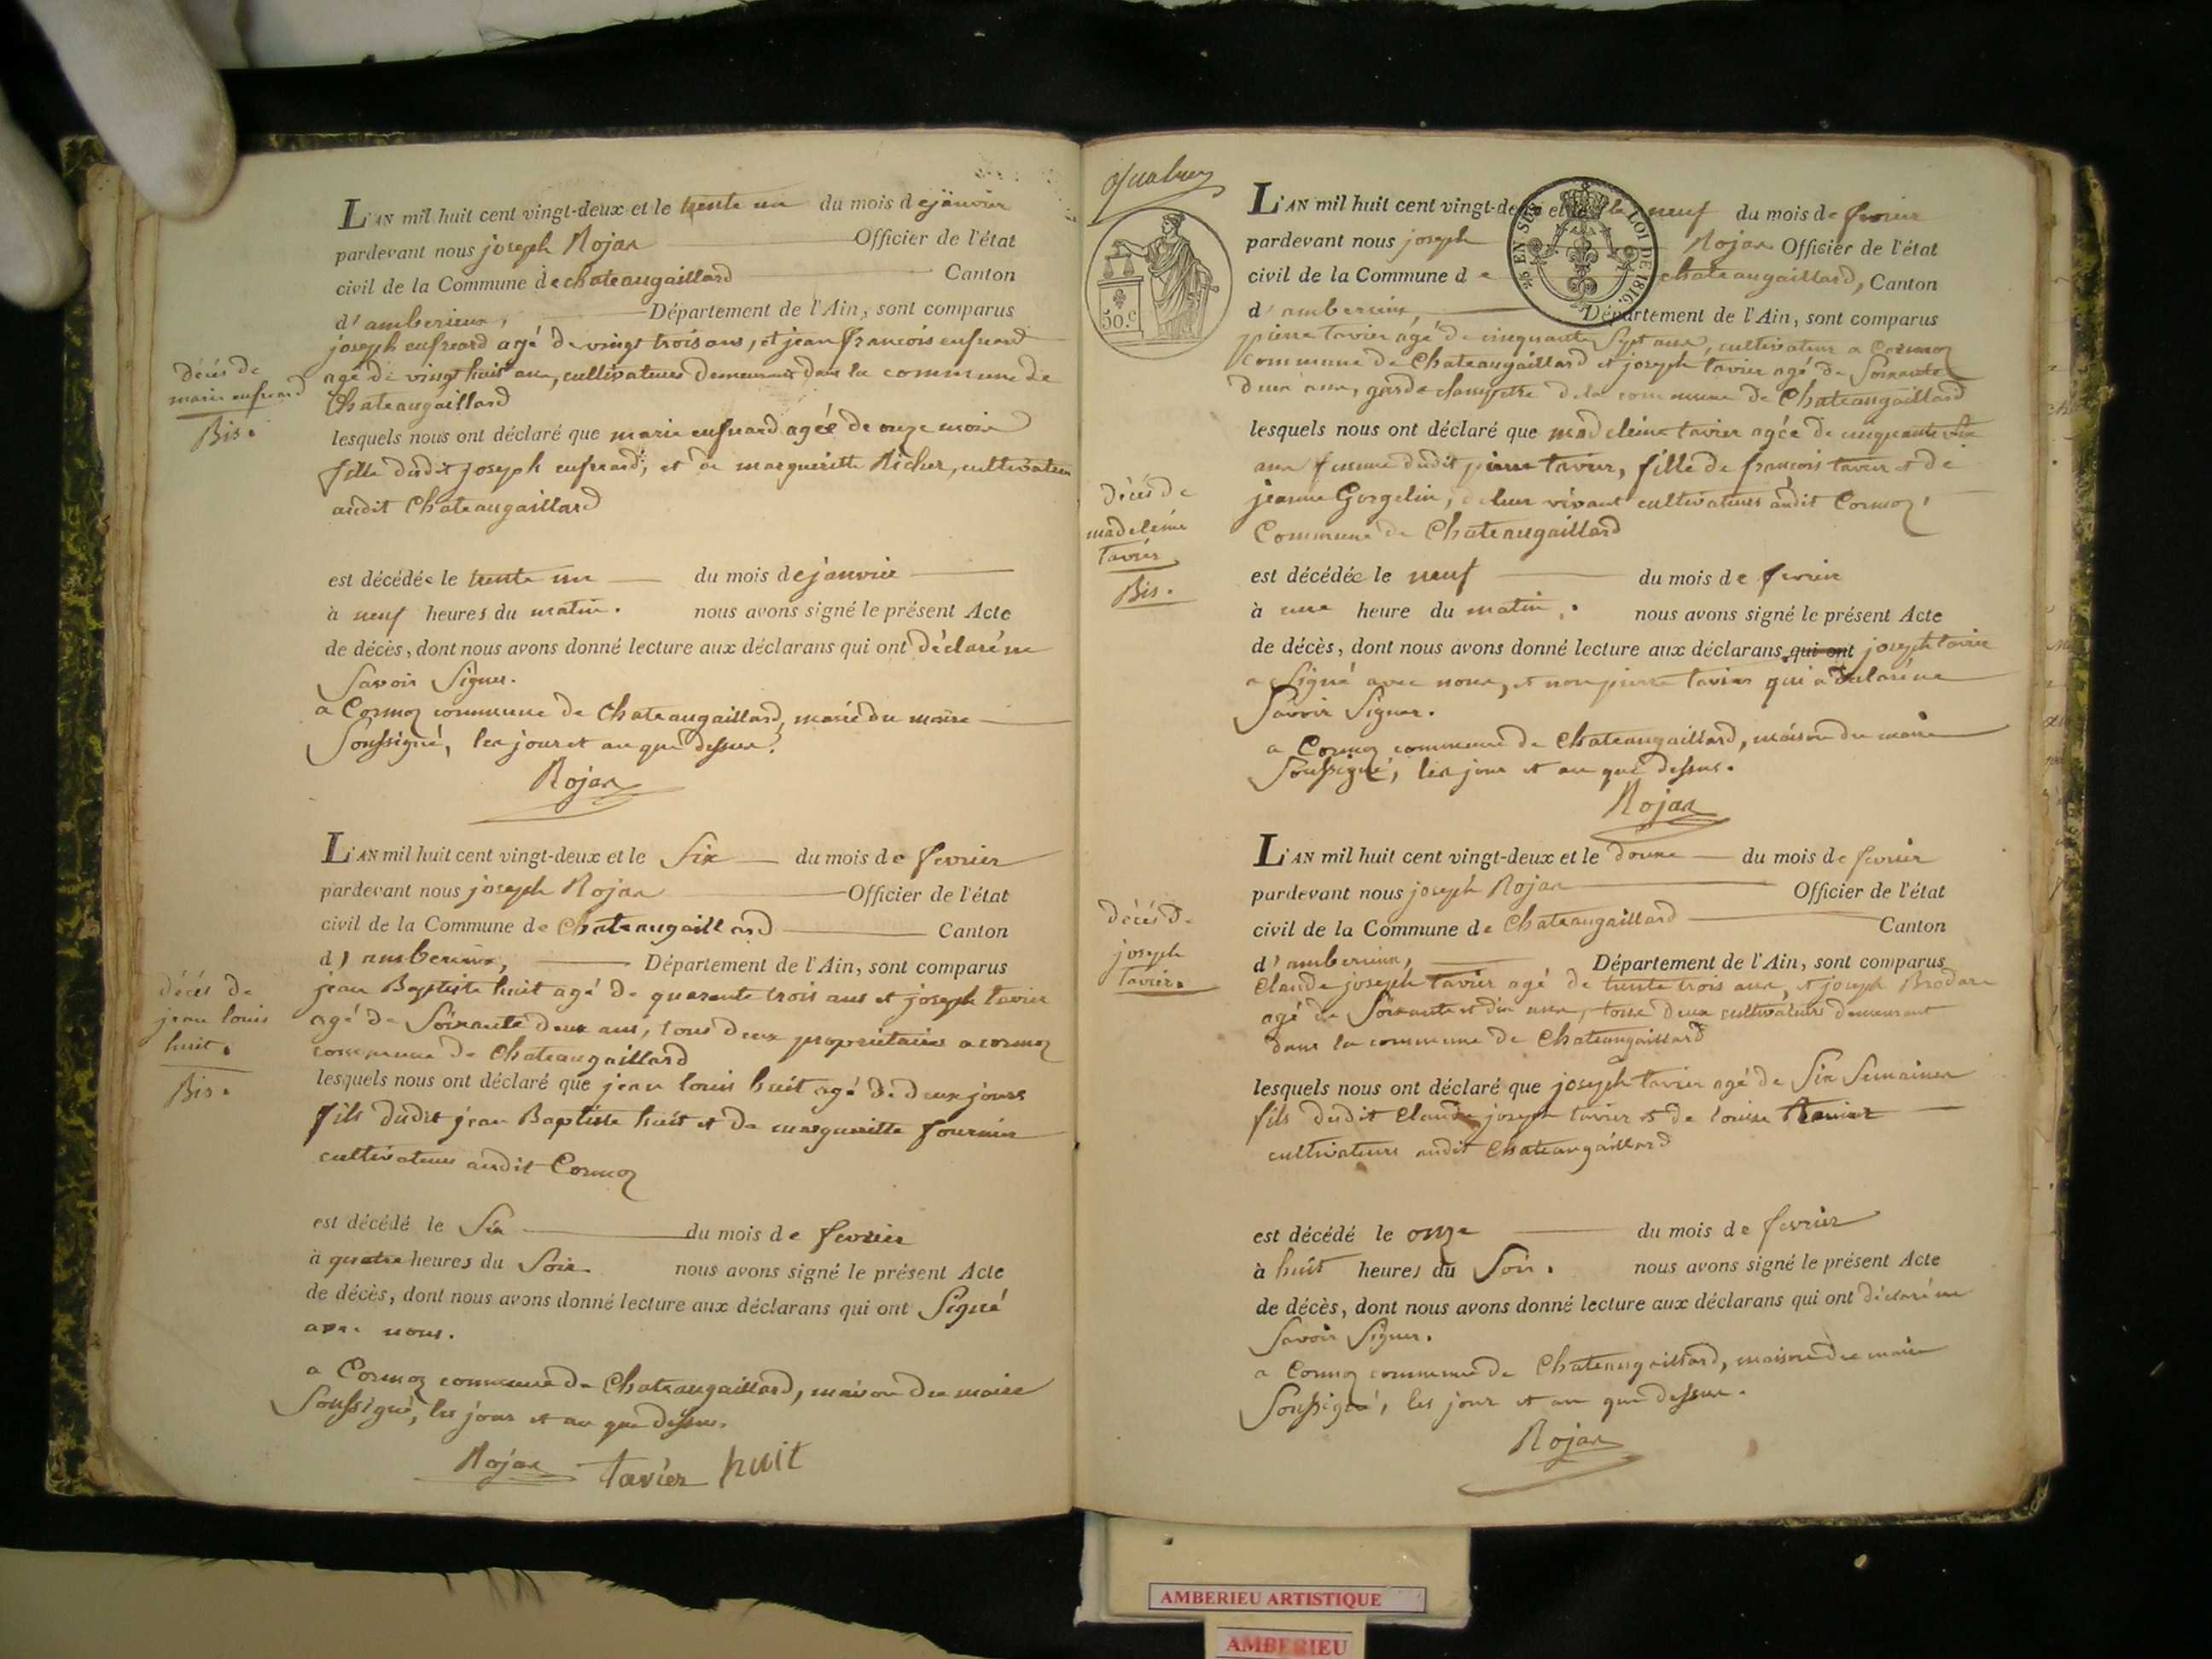 L'AN mil huit cent vingt-deux et le trente un du mois de janvier
pardevant nous joseph Rojar Officier de l'état
civil de la Commune de chateaugaillard Canton
d'amberieux, Département de l'Ain, sont comparus
joseph agé de vingt trois ans, et jean francois
agé de vingt huit ans, cultivateurs demeurant dans la commune de
Chateaugaillard
décès de
marie
Bis.
lesquels nous ont déclaré que marie agée de onze mois
fille dudit joseph et de margueritte Richer, cultivateurs
audit Chateaugaillard
est décédée le trente un du mois de janvier
à neuf heures du matin. nous avons signé le présent Acte
de décès, dont nous avons donné lecture aux déclarans qui ont déclaré ne
Savoir Signer.
a Cormoz commune de Chateaugaillard, du maire
Soussigné, les jour et an que dessus.
Rojar
L'AN mil huit cent vingt-deux et le Six du mois de fevrier
pardevant nous joseph Rojar Officier de l'état
civil de la Commune de Chateaugaillard Canton
d'amberieux, Département de l'Ain, sont comparus
jean Baptiste huit agé de quarante trois ans et joseph tavier
agé de Soixante deux ans, tous deux proprietaires a cormoz
commune de Chateaugaillard
décès de
jean louis
huit.
Bis.
lesquels nous ont déclaré que jean louis huit agé de deux jours
fils dudit jean Baptiste huit et de margueritte fournier
cultivateurs audit Cormoz
est décédé le Six du mois de fevrier
à quatre heures du Soir nous avons signé le présent Acte
de décès, dont nous avons donné lecture aux déclarans qui ont Signé
avec nous.
a Cormoz commune de Chateaugaillard, maison du maire
Soussigné, les jour et an que dessus.
Rojar tavier huit
50.c
EN SUS LOI DE 1816.
L'AN mil huit cent vingt-deux et le neuf du mois de fevrier
pardevant nous joseph Rojar Officier de l'état
civil de la Commune de chateaugaillard, Canton
d'amberieux, Département de l'Ain, sont comparus
pierre tavier agé de cinquante Sept ans, cultivateur a Cormoz
commune de Chateaugaillard et joseph tavier agé de Soixante
deux ans, garde champetre de la commune de Chateaugaillard
lesquels nous ont déclaré que madeleine tavier agée de cinquante Six
ans femme dudit pierre tavier, fille de françois tavier et de
jeanne Gorgelin, de leur vivant cultivateurs audit Cormoz,
Commune de Chateaugaillard
décès de
madeleine
Tavier
Bis.
est décédée le neuf du mois de fevrier
à une heure du matin. nous avons signé le présent Acte
de décès, dont nous avons donné lecture aux déclarans qui ont joseph tavier
a Signé avec nous, et non pierre tavier qui a declaré ne
Savoir Signer.
a Cormoz commune de Chateaugaillard, maison du maire
Soussigné, les jour et an que dessus.
Rojar
L'AN mil huit cent vingt-deux et le douze du mois de fevrier
pardevant nous joseph Rojar Officier de l'état
civil de la Commune de Chateaugaillard Canton
d'amberieux, Département de l'Ain, sont comparus
Claude joseph tavier agé de trente trois ans, et joseph
agé de Soixante et dix ans, tous deux cultivateurs demeurant
dans la commune de Chateaugaillard
décès de
joseph
Tavier.
lesquels nous ont déclaré que joseph tavier agé de Six Semaines
fils dudit Claude joseph tavier et de louise
cultivateurs audit Chateaugaillard
est décédé le onze du mois de fevrier
à huit heures du Soir. nous avons signé le présent Acte
de décès, dont nous avons donné lecture aux déclarans qui ont déclaré ne
Savoir Signer.
a Cormoz commune de Chateaugaillard, maison du maire
Soussigné, les jour et an que dessus.
Rojar
AMBERIEU ARTISTIQUE
AMBERIEU